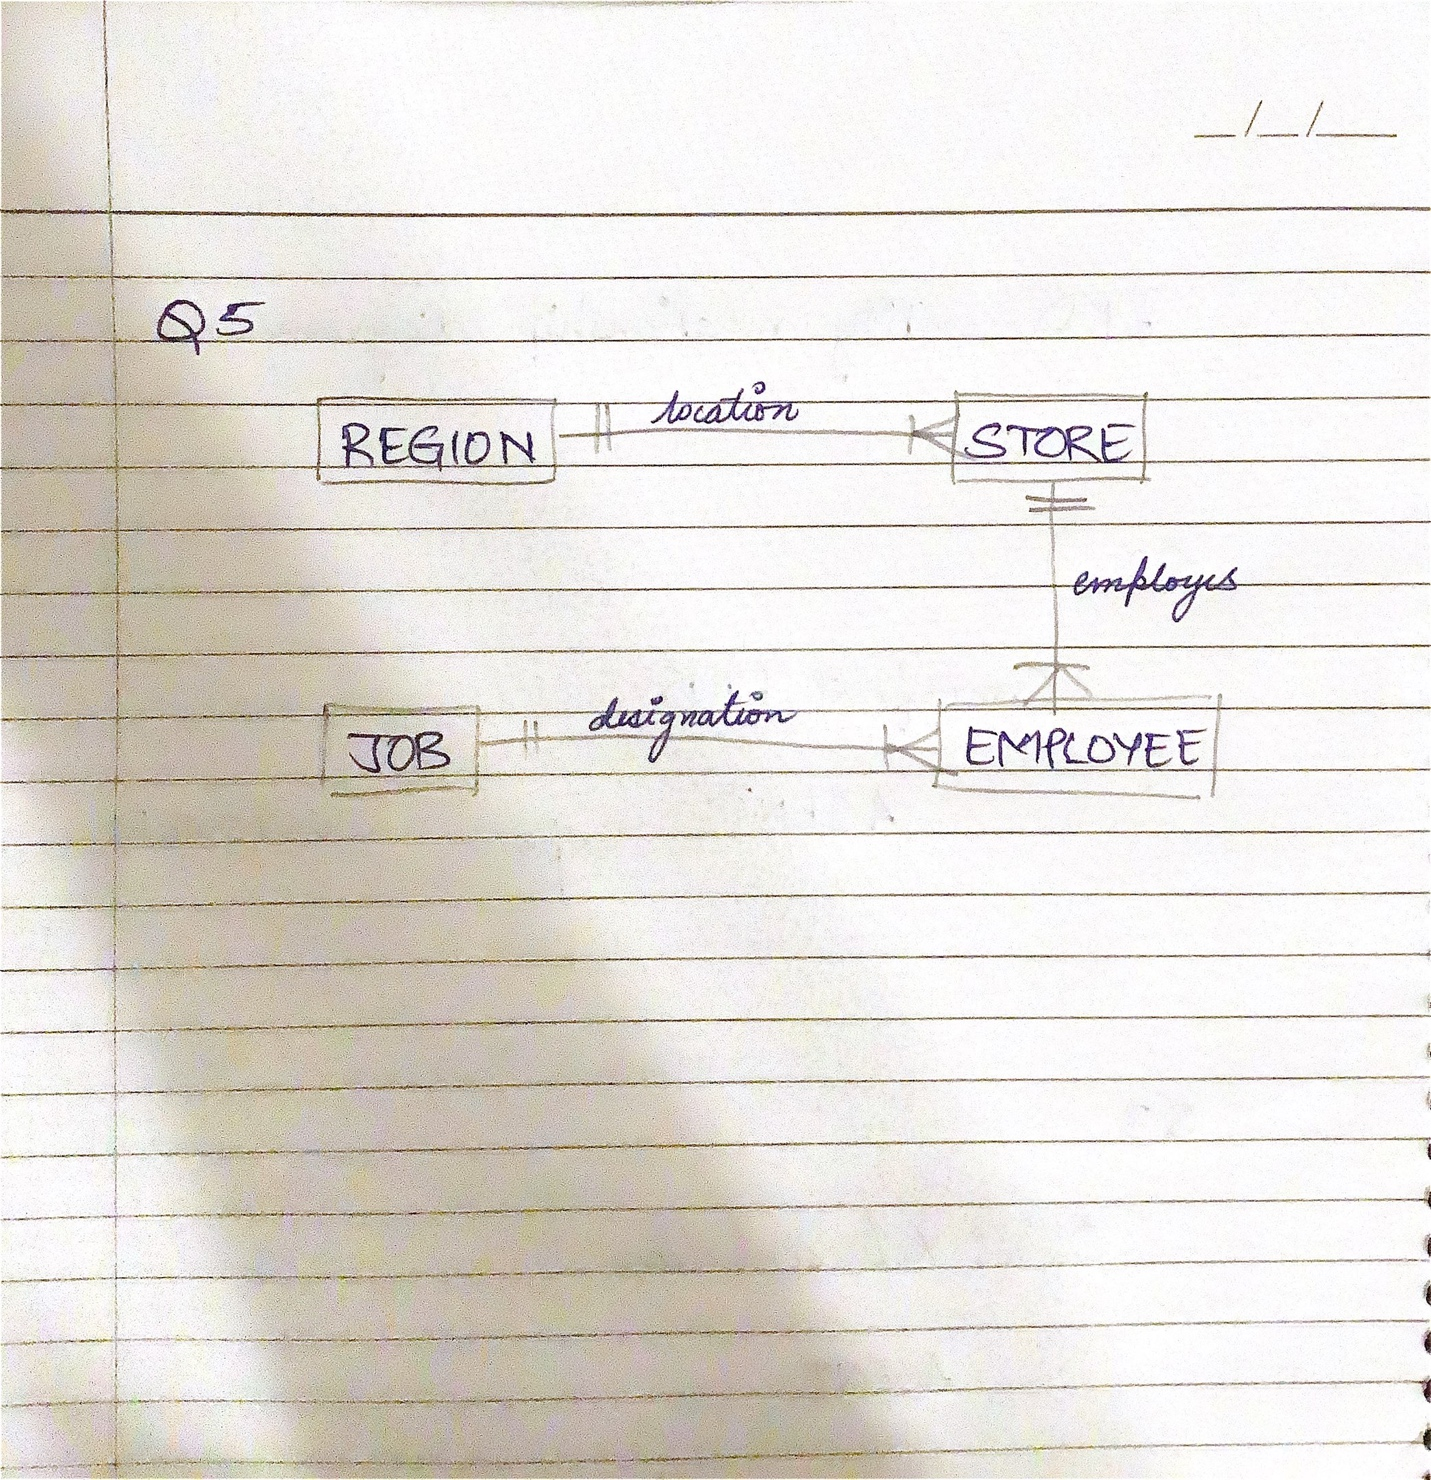 __/__/____
Q5
REGION location STORE
employs
JOB designation EMPLOYEE